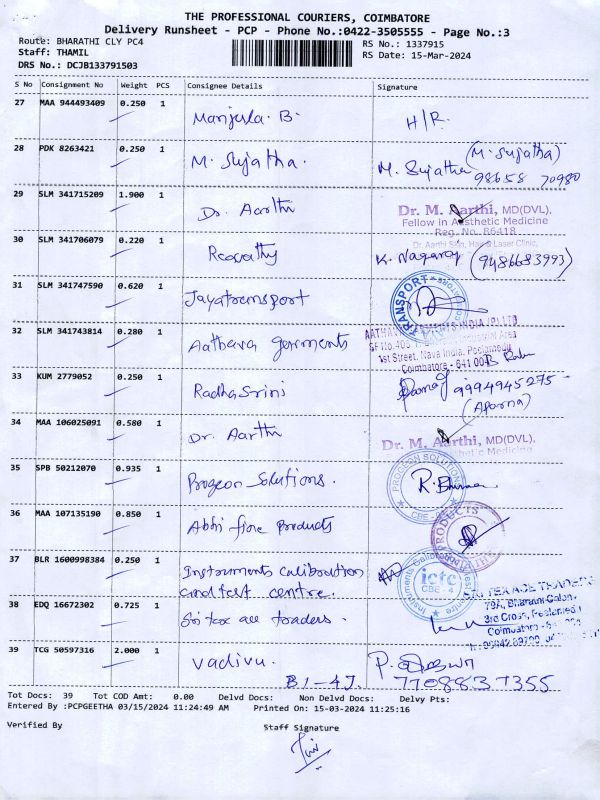 THE PROFESSIONAL COURIERS, COIMBATORE
Delivery Runsheet - PCP - Phone No.:0422-3505555 - Page No.:3
Route: BHARATHI CLY PC4 RS No.: 1337915
Staff: THAMIL RS Date: 15-Mar-2024
DRS No.: DCJB133791503
S No Consignment No Weight PCS Consignee Details Signature
27 MAA 944493409 0.250 1 Manjula. B. H/R.
28 PDK 8263421 0.250 1 M. Sujatha. M. Sujatha (M. Sujatha)
98658 70980
29 SLM 341715209 1.900 1 Dr. Aarthi Dr. M. Aarthi, MD(DVL),
Fellow in Aesthetic Medicine
Reg. No. 86418
Dr. Aarthi Skin, Hair & Laser Clinic,
30 SLM 341706079 0.220 1 Revathy K. Nagaraj (9486683993)
31 SLM 341747590 0.620 1 Jayatransport TRANSPORT
32 SLM 341743814 0.280 1 Aathava garments INDIA (P) LTD
SF No.405 Industrial Area
1st Street, Nava India, Peelamedu
Coimbatore - 641 004
33 KUM 2779052 0.250 1 Radha Srini 9994945275
(Aparna)
34 MAA 106025091 0.580 1 Dr. Aarthi Dr. M. Aarthi, MD(DVL),
Aesthetic Medicine
35 SPB 50212070 0.935 1 Progeon Solutions. PROGEON SOLUTIONS
CBE - 4
36 MAA 107135190 0.850 1 Abhi fine Products PRODUCTS
37 BLR 1600998384 0.250 1 Instruments calibration
and test centre. Instruments Calibration Test Centre
ictc
CBE - 4
38 EDQ 16672302 0.725 1 Sri tex ace traders. SRI TEX ACE TRADERS
79A, Bharathi Colony
3rd Cross, Peelamedu
Coimbatore
39 TCG 50597316 2.000 1 Vadivu. P.
B1-4J. 7708837355
Tot Docs: 39 Tot COD Amt: 0.00 Delvd Docs: Non Delvd Docs: Delvy Pts:
Entered By :PCPGEETHA 03/15/2024 11:24:49 AM Printed On: 15-03-2024 11:25:16
Verified By Staff Signature